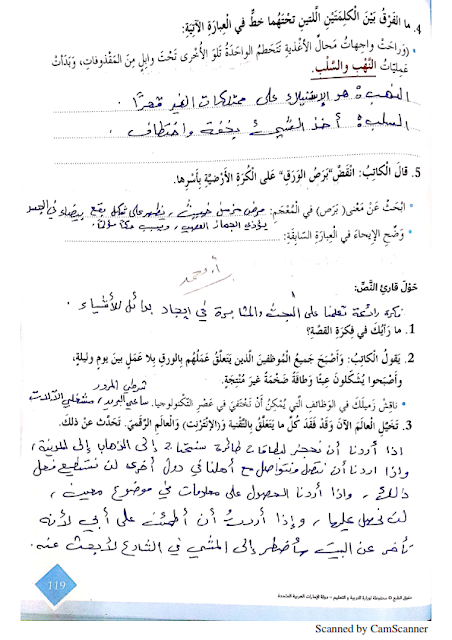 4. ما الفَرْقُ بَيْنَ الكَلِمَتَيْنِ اللَّتينِ تَحْتَهُما خطٌّ في العِبارَةِ الآتِيَةِ:
• (وَراحَتْ واجِهاتُ مَحالِّ الأَغْذِيَةِ تَتَحَطَّمُ الواحِدَةُ تِلْوَ الأُخْرى تَحْتَ وابِلٍ مِنَ المَقْذوفاتِ، وَبَدَأَتْ
عَمليّاتُ النَّهْبِ والسَّلْبِ.
النهب: هو الاستيلاء على ممتلكات الغير قهرًا.
السلب: أخذ الشيء بخفة واختطاف.
5. قالَ الكاتِبُ: انْقَضَّ "بَرَصُ الوَرَقِ" عَلى الكُرَةِ الأَرْضِيَّةِ بِأَسْرِها.
• ابْحَثْ عَنْ مَعْنى (بَرَصٍ) في المُعْجَمِ: مرض مزمن خبيث، يظهر على شكل بقع بيضاء في الجسد
يؤذي الجهاز العصبي، ويسبب حكا مؤلمًا.
• وَضِّحِ الإيحاءَ في العِبارَةِ السّابِقَةِ:
حَوْلَ قارِئِ النَّصِّ:
فكرة رائعة تعلمنا على البحث والمثابرة في إيجاد بدائل للأشياء.
1. ما رَأْيُكَ في فِكْرَةِ القِصَّةِ؟
2. يَقولُ الكاتِبُ: وَأَصْبَحَ جَميعُ المُوَظَّفينَ الَّذينَ يَتَعَلَّقُ عَمَلُهُمْ بِالوَرَقِ بِلا عَمَلٍ بَيْنَ يومٍ وليلةٍ،
وَأَصْبَحوا يُشَكِّلونَ عِبْئًا وَطاقَةً ضَخْمَةً غَيرَ مُنْتِجَةٍ.
شرطي المرور
• ناقِشْ زَميلَكَ في الوَظائِفِ الَّتي يُمْكِنُ أَنْ تَخْتَفِيَ في عَصْرِ التِّكْنولوجيا. ساعي البريد، مشغلي الآلات
3. تَخَيَّلِ العالَمَ الآنَ وَقَدْ فَقَدَ كُلَّ ما يَتَعَلَّقُ بِالتِّقْنِيَةِ وَ(الإِنْتَرْنِتِ)، وَالعالَمِ الرَّقْمِيِّ. تَحَدَّثْ عَنْ ذلِكَ.
إذا أردنا أن نحجز بطاقات طائرة سنحتاج إلى الذهاب إلى المدينة،
وإذا أردنا أن نتصل ونتواصل مع أهلنا في دول أخرى لن نستطيع فعل
ذلك، وإذا أردنا الحصول على معلومات في موضوع معين،
لن نحصل عليها، وإذا أردت أن أطمئن على أبي لأنه
تأخر عن البيت سأضطر إلى المشي في الشارع لأبحث عنه.
حقوق الطبع © محفوظة لوزارة التربية و التعليم - دولة الإمارات العربية المتحدة
119
Scanned by CamScanner